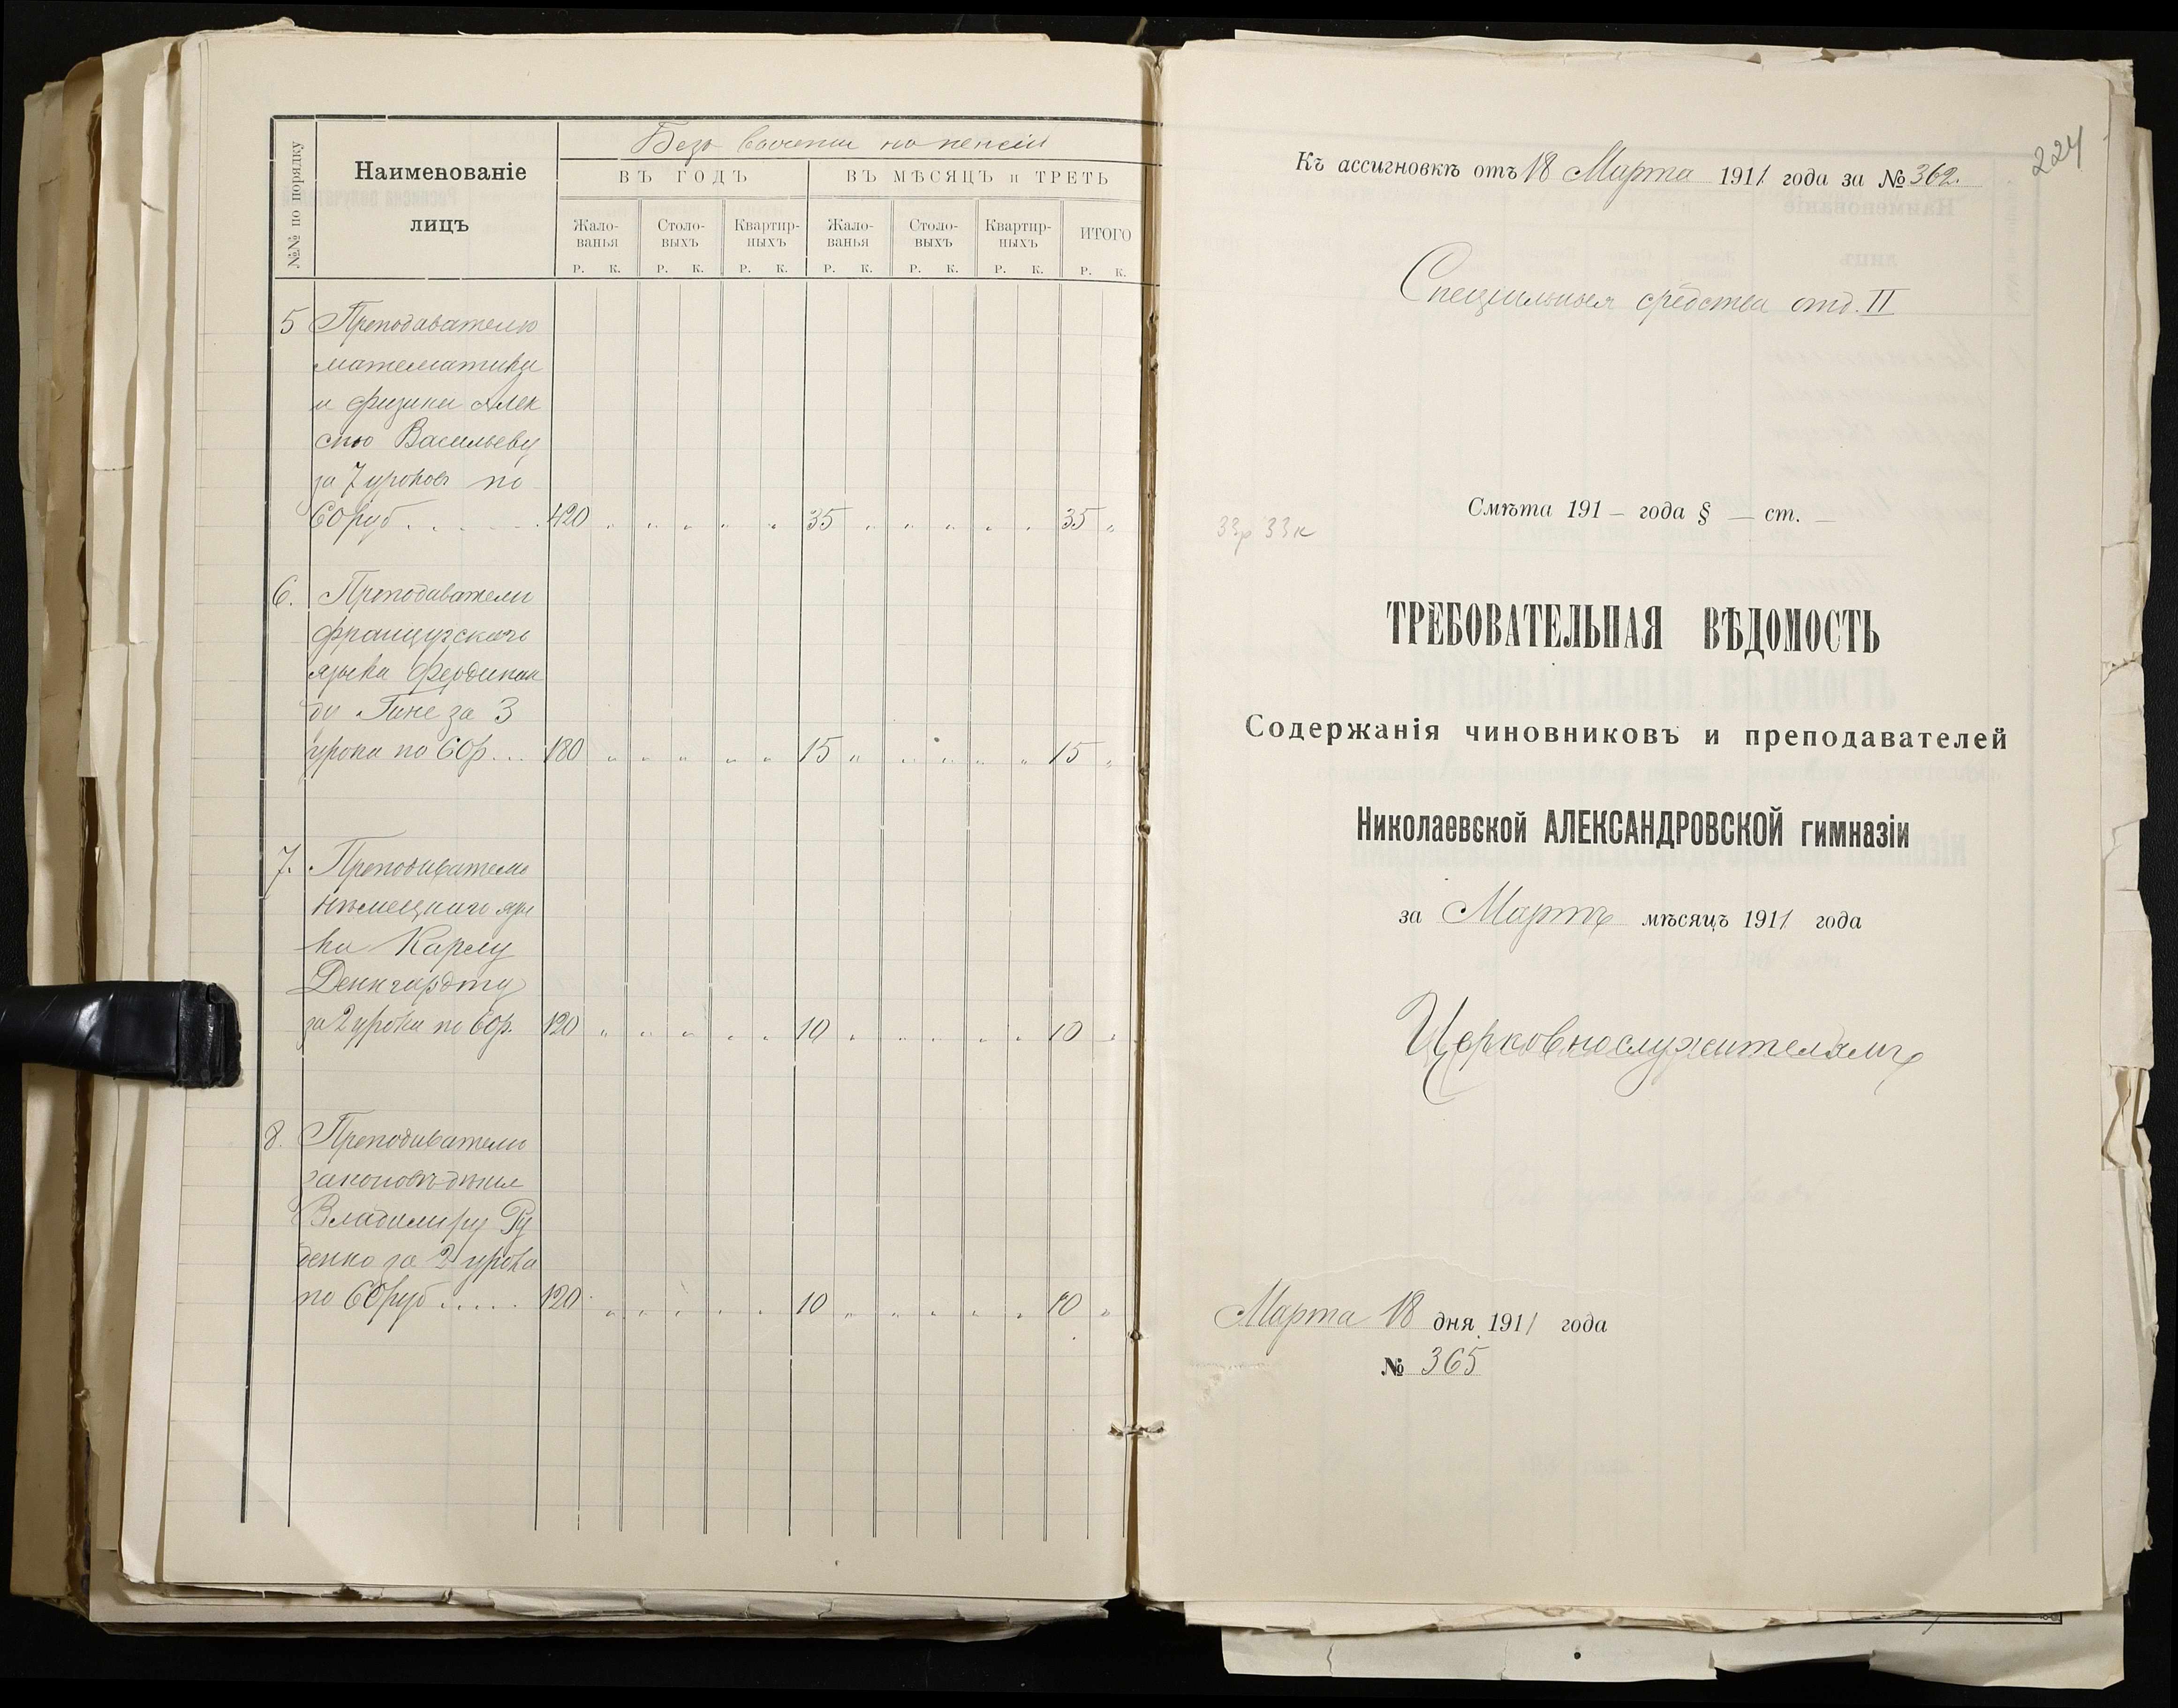 №№ по порядку
Наименованіе
лицъ
Безъ вычета на пенсіи
ВЪ ГОДЪ
ВЪ МѢСЯЦЪ и ТРЕТЬ
Жало-
ванья
Столо-
выхъ
Квартир-
ныхъ
Жало-
ванья
Столо-
выхъ
Квартир-
ныхъ
ИТОГО
Р. К. Р. К. Р. К. Р. К. Р. К. Р. К. Р. К.
5 Преподавателю
математики
и физики Алек
сѣю Васильеву
за 7 уроковъ по
60 руб. . . . . 420 " " " " " 35 " " " " " 35 "
6. Преподавателю
французскаго
языка Фердинан
ду Гине за 3
урока по 60 р. . . 180 " " " " " 15 " " " " " 15 "
7. Преподавателю
нѣмецкаго язы
ка Карлу
Денгардту
за 2 урока по 60 р. 120 " " " " " 10 " " " " " 10 "
8. Преподавателю
законовѣдѣнія
Владимиру Ру
денко за 2 урока
по 60 руб. . . . . 120 " " " " " 10 " " " " " 10 "
224
Къ ассигновкѣ отъ 18 Марта 1911 года за № 362.
Спеціальныя средства отд. II
Смѣта 191 – года § – ст. –
33р 33к
ТРЕБОВАТЕЛЬНАЯ ВѢДОМОСТЬ
Содержанія чиновниковъ и преподавателей
Николаевской АЛЕКСАНДРОВСКОЙ гимназіи
за Мартъ мѣсяцъ 1911 года
Церковнослужителямъ
Марта 18 дня 1911 года
№ 365